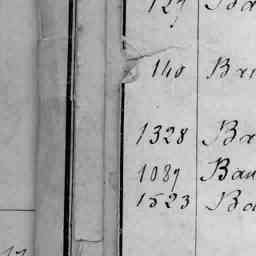 127 Ba
140 Bri
1328 Br
1089 Bau
1523 Ba